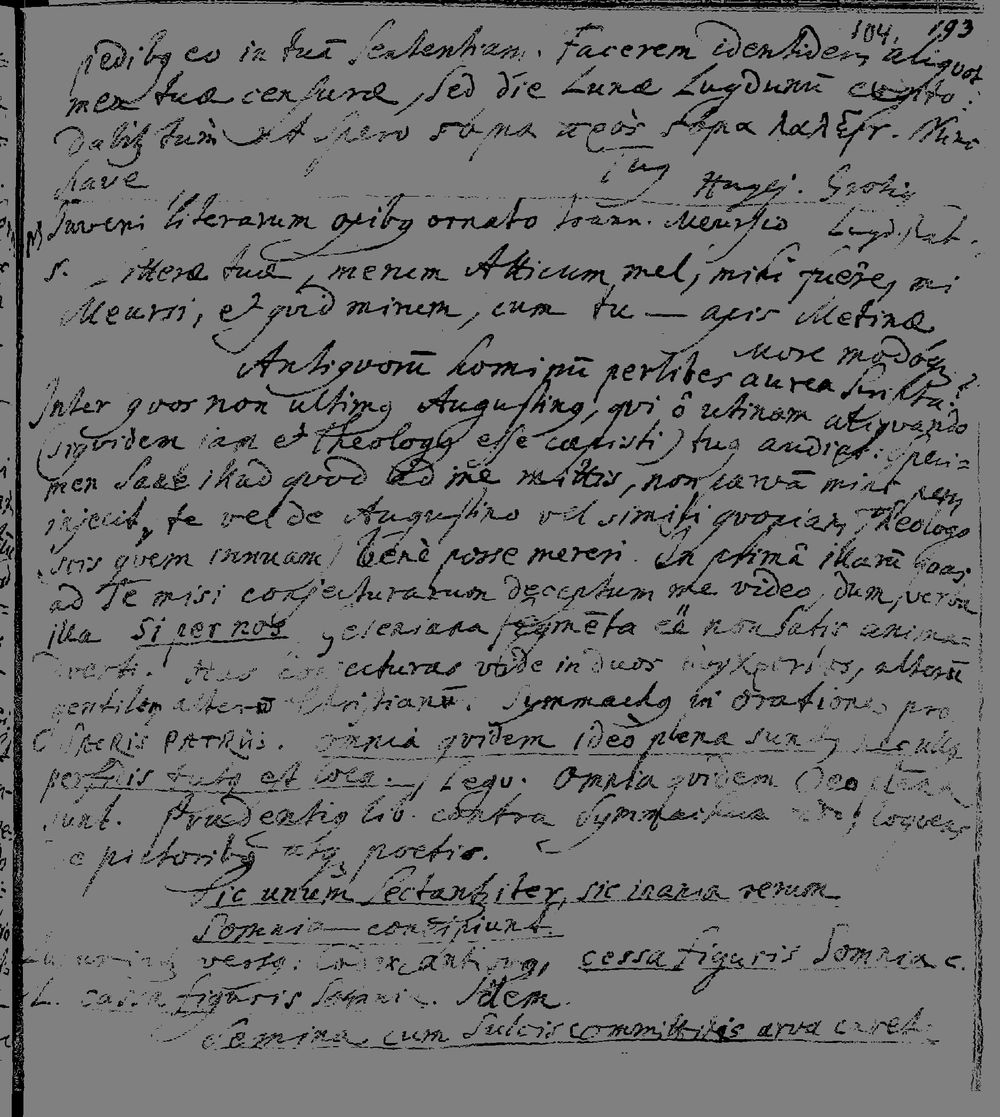 104. 193
pedibq eo in tuā sententiam. Facerem identidem aliquot
mea tuæ censuræ, sed die Lunæ Lugdunū cogito:
Dabitz tum ut spero σόμα πρὸς σόμα λαλεῖν. Nunc
have
Tuq Hugej. Grotiq
Juveni literarum opibq ornato Ioann. Meursio Lugd. Bat.
S. Litteræ tuæ, merum Atticum mel, mihi fuêre, mi
Meursi, et quid mirum, cum tu — apis Matinæ
More modoq
Antiquorū hominū perlibes aurea scripta?
Inter quos non ultimq Augustinq, qui ô utinam aliquando
(siquidem iam et Theologq esse cœpisti) tuq audiat: speci=
men sane illud quod ad me mittis, non parvā mihi spem
injecit, te vel de Augustino vel simili quopiam Theologo
(scis quem innuam) benè posse mereri. In primâ illarū quas
ad Te misi conjecturarum deceptum me video, dum, verba
illa si per nos, esse non satis anima=
verti. Has conjecturas vide in duos, alterū
gentilem alterū Christianū. Symmachq in oratione pro
SACRIS PATRIIS. omnia quidem ideò plena sunt, nec ullq
perfidis tutq est locq. Lego. Omnia quidem Deo plena
sunt. Prudentiq lib. contra Symmachum loquens
de pictoribq atq poetis.
Sic unum sectantz iter, sic inania rerum
Somnia concipiunt
versq. Codex antiquq, cessa figuris somnia c.
L. cassa figuris somnia. Idem.
Semina cum sulcis committitis arva caret.